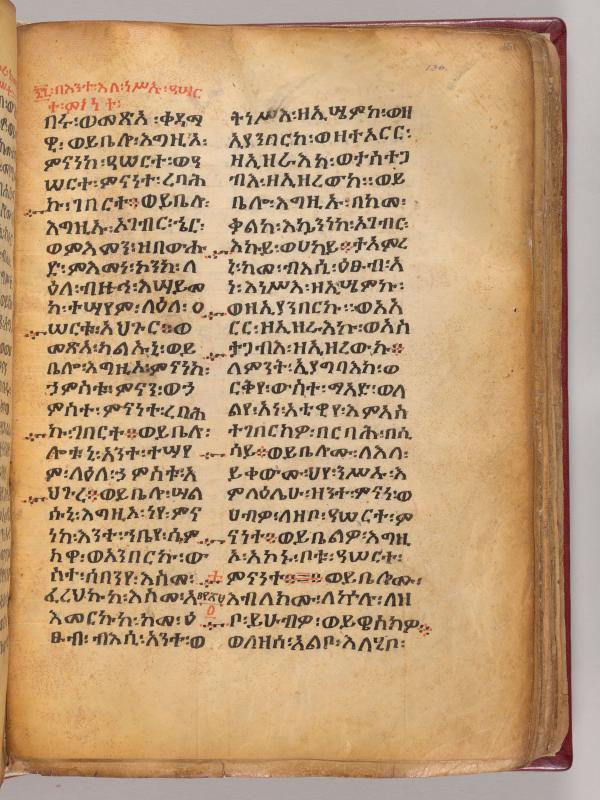 ፷፯፡በእንተ፡እለ፡ነሥኡ፡ዓሠር
ተ፡ምናንተ፡
በሩ፡ወመጽአ፡ቀዳማ
ዊ፡ወይቤሎ፡እግዚእ፡
ምናንከ፡ዓሠርተ፡ወዓ
ሠርተ፡ምናንተ፡ረባሕ
ኩ፡ገበርተ፡፡ወይቤሎ፡
እግዚኡ፡ኦገብር፡ኄር፡
ወምእመን፡ዘበውሑ
ድ፡ምእመነ፡ኮንከ፡ለ
ዕለ፡ብዙኅ፡እሠይመ
ከ፡ተሣየም፡ላዕለ፡ዐ
ሠርቱ፡አህጉር፡፡ወ
መጽአ፡ካልኡኒ፡ወይ
ቤሎ፡እግዚኦ፡ምናንከ፡
ኃምስቱ፡ምናን፡ወኃ
ምስተ፡ምናንተ፡ረባሕ
ኩ፡ገበርተ፡፡ወይቤሎ፡
ሎቱኒ፡አንተ፡ተሣየ
ም፡ላዕለ፡ኃምስቱ፡አ
ህጉረ፡፡ወይቤሎ፡ሣል
ሱኒ፡እግዚኦ፡ነየ፡ምና
ንከ፡እንተ፡ኀቤየ፡ሤም
ከዋ፡ወአንበርኩ፡ው
ስተ፡ሰበንየ፡እስመ፡
ፈረህኩከ፡እስመ፡አ
አመርኩከ፡ከመ፡ዕ
ፁብ፡ብእሲ፡አንተ፡ወ
ትነሥእ፡ዘኢሤምከ፡ወዘ
ኢያንበርከ፡ወዘተአርር፡
ዘኢዘራእከ፡ወታስተጋ
ብእ፡ዘኢዘረውከ፡፡ወይ
ቤሎ፡እግዚኡ፡በከመ፡
ቃልከ፡እኴንነከ፡ኦገብር፡
እኩይ፡ወሀካይ፡፡ታአምረ
ኒ፡ከመ፡ብእሲ፡ዕፁብ፡አ
ነ፡እነሥእ፡ዘኢሤምኩ፡
ወዘኢያንበርኩ፡፡ወአአ
ርር፡ዘኢዘራእኩ፡ወአስ
ተጋብእ፡ዘኢዘረውኩ፡፡
ለምንት፡ኢያግባእከ፡ወ
ርቅየ፡ውስተ፡ማእድ፡ወለ
ልየ፡አነ፡አቲውየ፡እምአስ
ተገበርክዎ፡በርባሕ፡በሲ
ሳይ፡፡ወይቤሎሙ፡ለእለ፡
ይቀውሙ፡ህየ፡ንሥኡ፡እ
ምላዕሌሁ፡ዘንተ፡ምናን፡ወ
ሀብዎ፡ለዘቦ፡ዓሠርተ፡ም
ናንተ፡፡ወይቤልዎ፡እግዚ
ኦ፡አኮኑ፡ቦቱ፡ዓሠርተ፡
ምናንተ፡፡ወይቤሎሙ፡
እብለክሙ፡ለኵሉ፡ለዘ
ቦ፡ይሁብዎ፡ወይዌስክዎ፡፡
ወለዘሰ፡አልቦ፡እለሂቦ፡